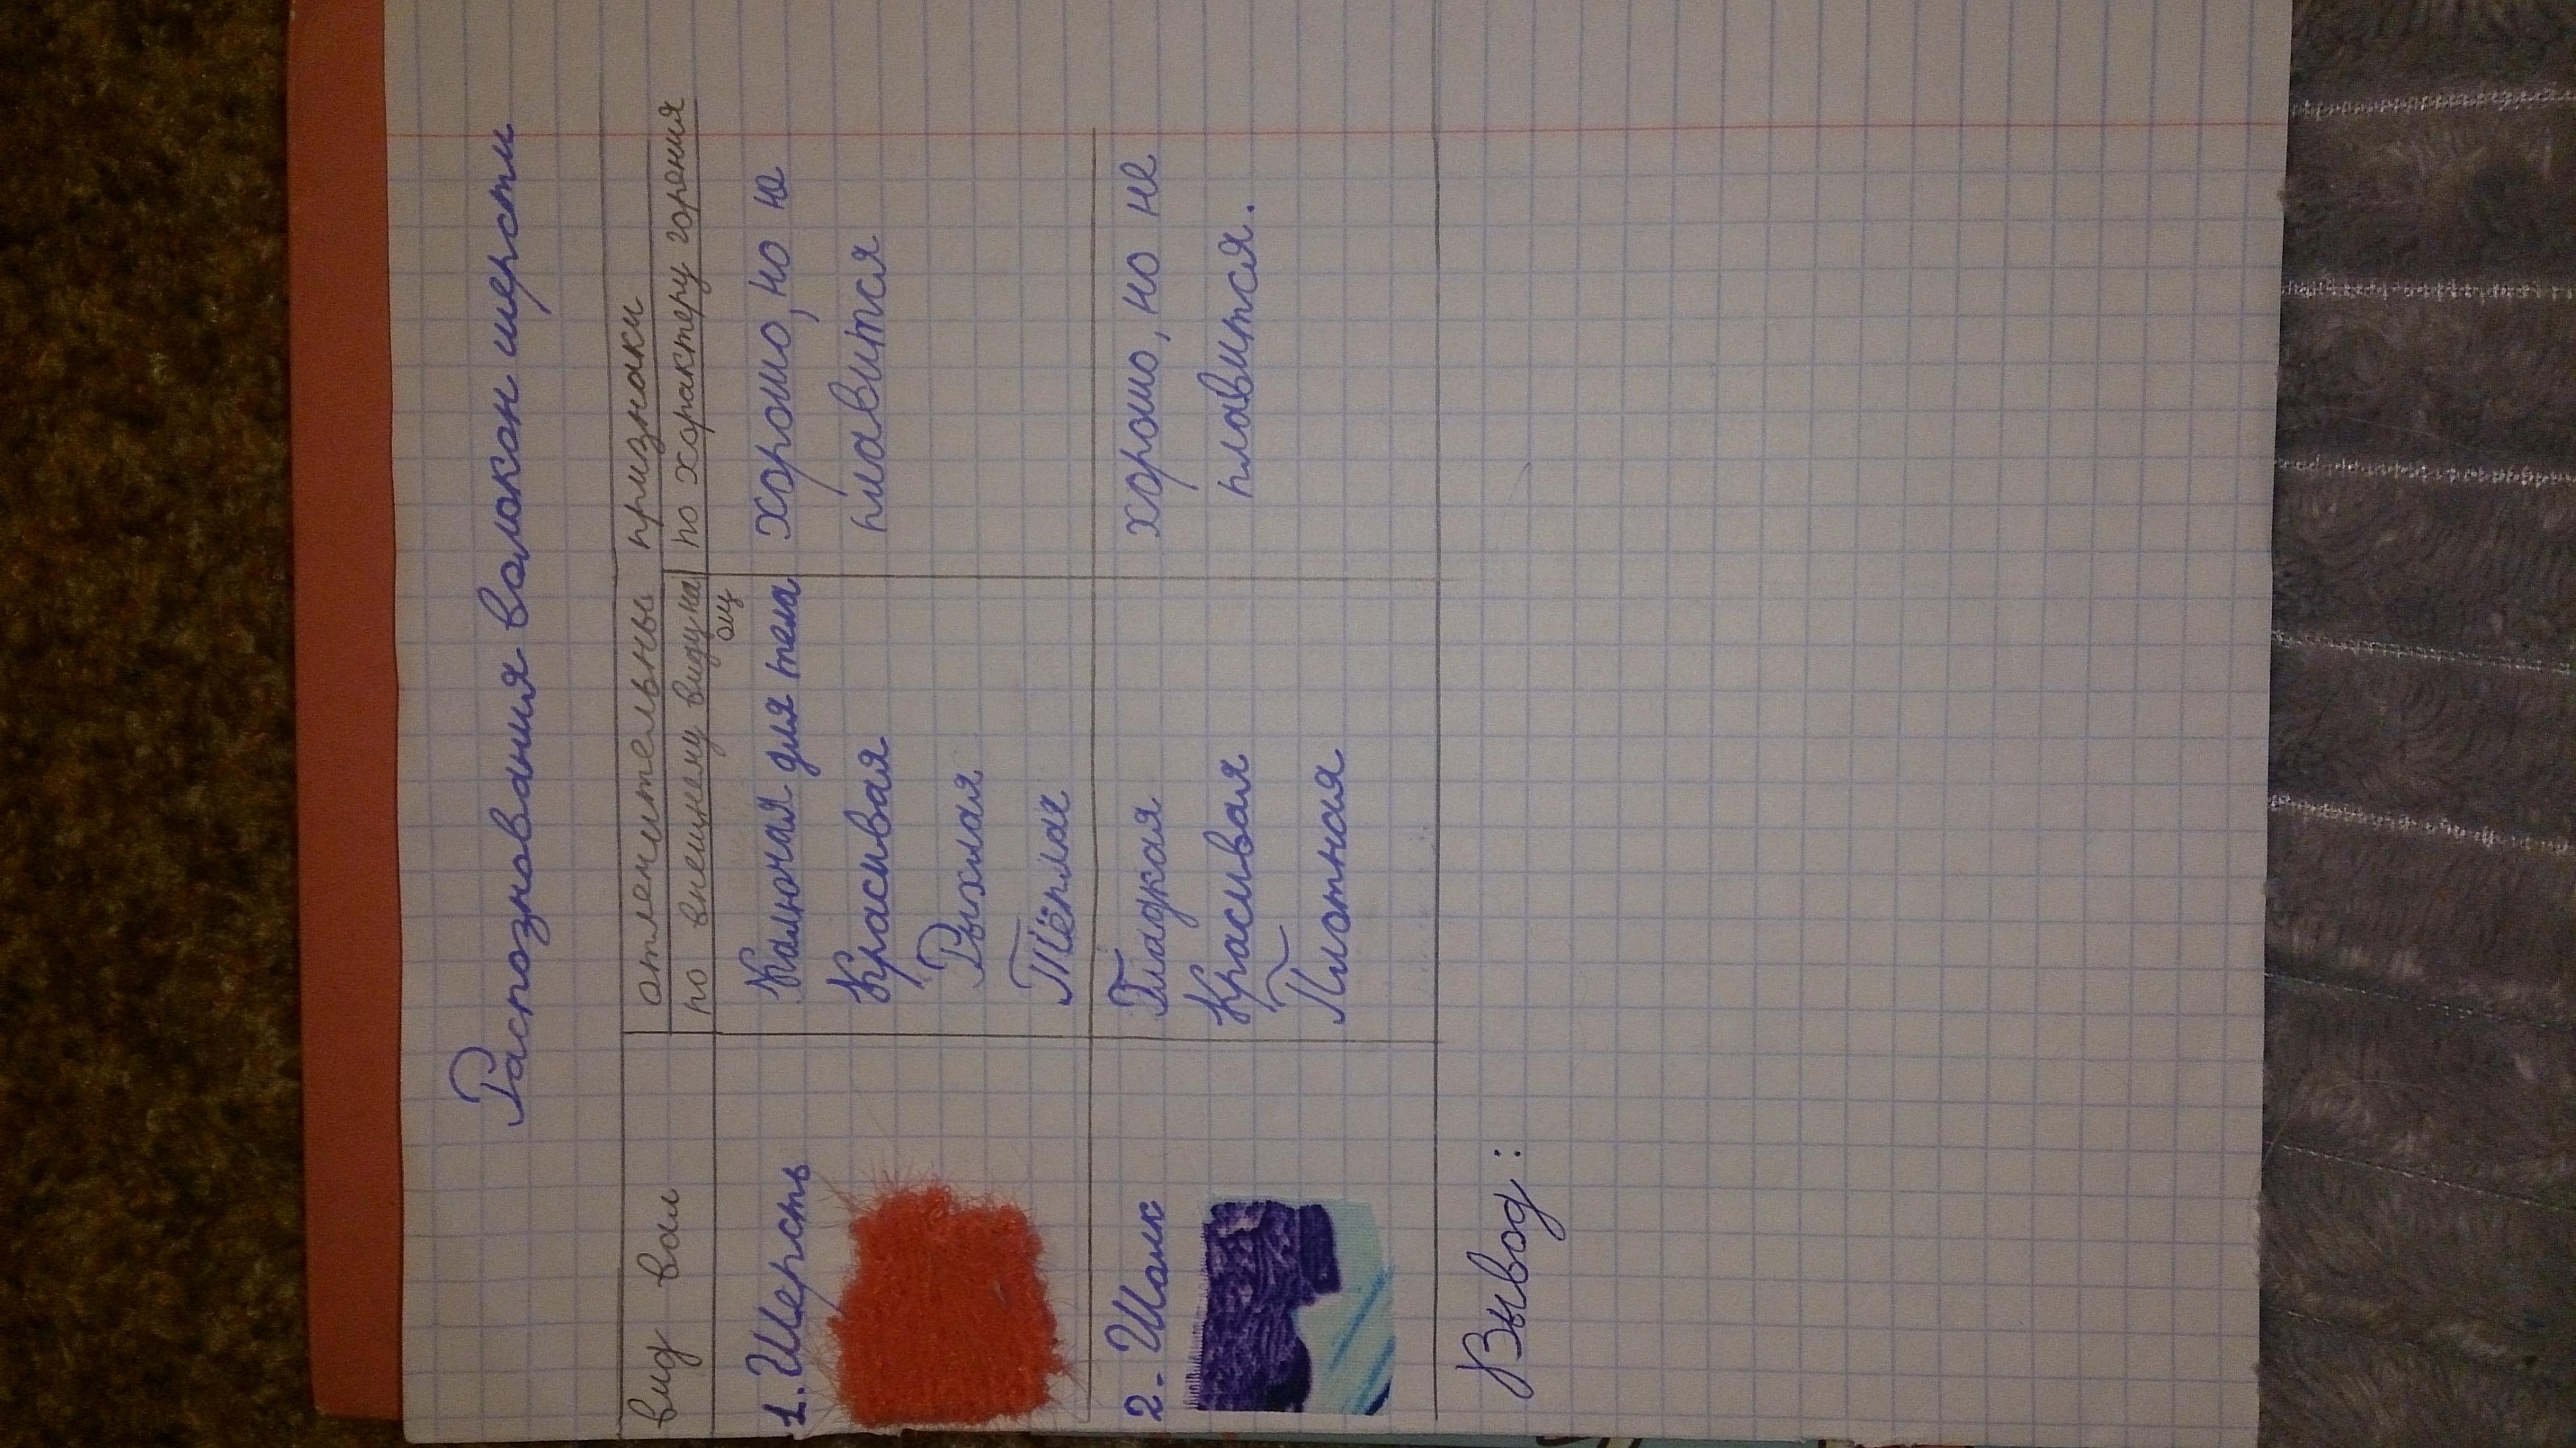 Распознования волокон шерсти
вид вол
отлечительны признаки
по внешнему виду на ощ
по характеру горения
1. Шерсть
Колючая для тела
Красивая
Рыхлая
Тёплая
хорошо, но не
плавится
2. Шолк
Гладкая
Красивая
Плотная
хорошо, но не
плавится.
Вывод: